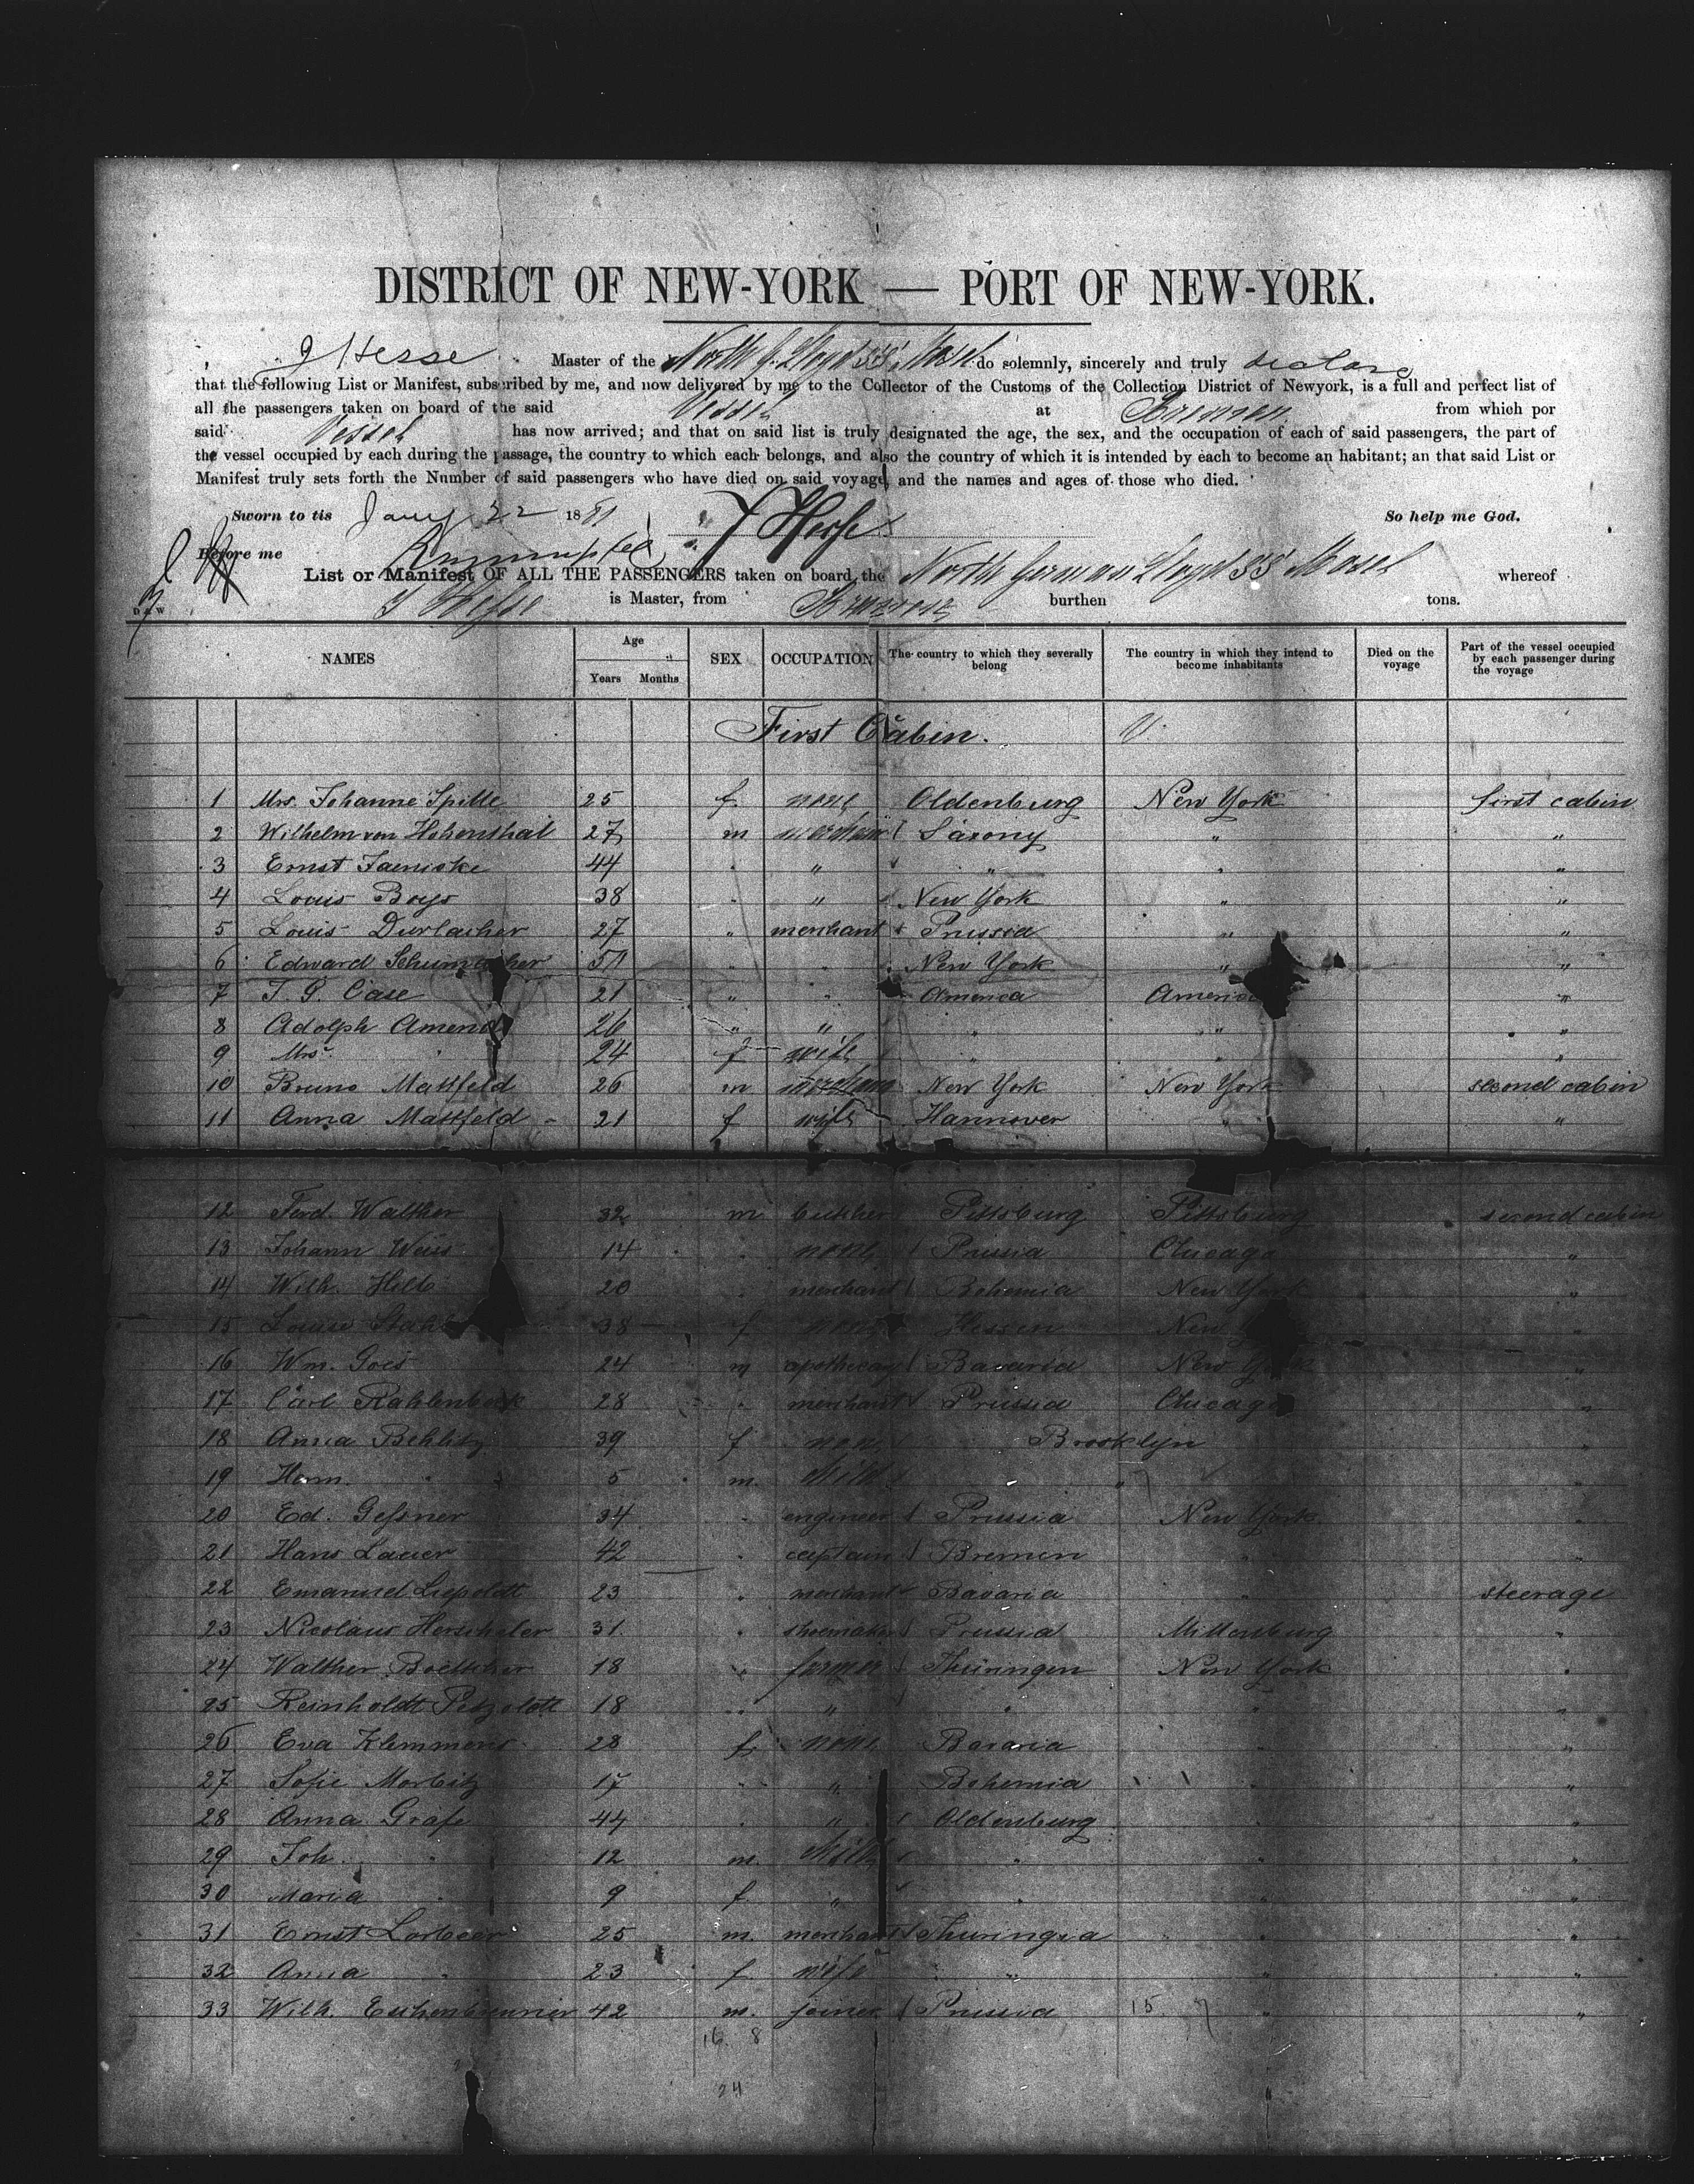 DISTRICT OF NEW-YORK — PORT OF NEW-YORK.
J Hesse Master of the North G. Lloyd SS Mosel do solemnly, sincerely and truly declare
that the following List or Manifest, subscribed by me, and now delivered by me to the Collector of the Customs of the Collection District of Newyork, is a full and perfect list of
all the passengers taken on board of the said Vessel at Bremen from which por
said Vessel has now arrived; and that on said list is truly designated the age, the sex, and the occupation of each of said passengers, the part of
the vessel occupied by each during the passage, the country to which each belongs, and also the country of which it is intended by each to become an habitant; an that said List or
Manifest truly sets forth the Number of said passengers who have died on said voyage, and the names and ages of those who died.
Sworn to tis Jany 22 1881 J Hesse So help me God.
Before me
List or Manifest OF ALL THE PASSENGERS taken on board the North German Lloyd SS Mosel whereof
J Hesse is Master, from Bremen burthen tons.
NAMES Age Years Months SEX OCCUPATION The country to which they severally belong The country in which they intend to become inhabitants Died on the voyage Part of the vessel occupied by each passenger during the voyage
First Cabin.
1 Mrs. Johanne Spille 25 f. none Oldenburg New York first cabin
2 Wilhelm von Hohenthal 27 m Saxony " "
3 Ernst Jaenicke 44 " " " " "
4 Louis Boys 38 " " New York " "
5 Louis Durlacher 27 " merchant Prussia " "
6 Edward Schumacher 51 " " New York " "
7 J. G. Case 21 " " America America "
8 Adolph Amend 26 " " " " "
9 Mrs. " 24 f wife " " "
10 Bruno Mattfeld 26 m New York New York second cabin
11 Anna Mattfeld 21 f wife Hannover " "
12 Ferd. Walther 32 m butcher Pittsburg Pittsburg second cabin
13 Johann Weis 14 " none Prussia Chicago "
14 Wilh. 20 " merchant Bohemia New York "
15 Louise 38 f none Hessen New "
16 Wm. Goes 24 m apothecary Bavaria New York "
17 Carl Rahlenbeck 28 " merchant Prussia Chicago "
18 Anna 39 f none Brooklyn "
19 Herm. " 5 m. child " "
20 Ed. Geßner 34 " engineer Prussia New York "
21 Hans Lauer 42 " captain Bremen " "
22 Emanuel Liepoldt 23 " merchant Bavaria " steerage
23 Nicolaus 31 " shoemaker Prussia Millenburg "
24 Walther Boettcher 18 " farmer Thüringen New York "
25 Reinholdt Petzoldt 18 " " " " "
26 Eva Klemmens 28 f. none Bavaria " "
27 Sofie 17 " " Bohemia " "
28 Anna Grafe 44 " " Oldenburg " "
29 Joh. " 12 m. child " " "
30 Maria " 9 f. " " " "
31 Ernst Lorbeer 25 m. merchant Thuringia " "
32 Anna " 23 f. wife " " "
33 Wilh. 42 m. joiner Prussia 15 7 " "
16 8
24